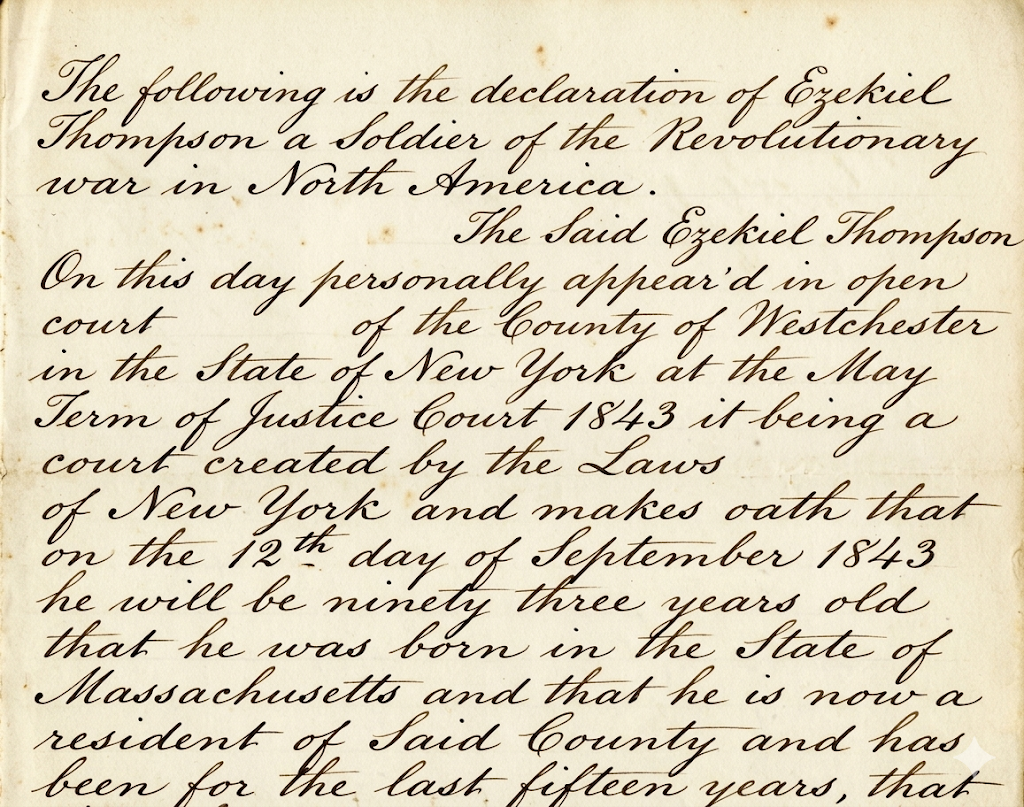 The following is the declaration of Ezekiel
Thompson a Soldier of the Revolutionary
war in North America.
The Said Ezekiel Thompson
On this day personally appear'd in open
court of the County of Westchester
in the State of New York at the May
Term of Justice Court 1843 it being a
court created by the Laws
of New York and makes oath that
on the 12th day of September 1843
he will be ninety three years old
that he was born in the State of
Massachusetts and that he is now a
resident of Said County and has
been for the last fifteen years, that